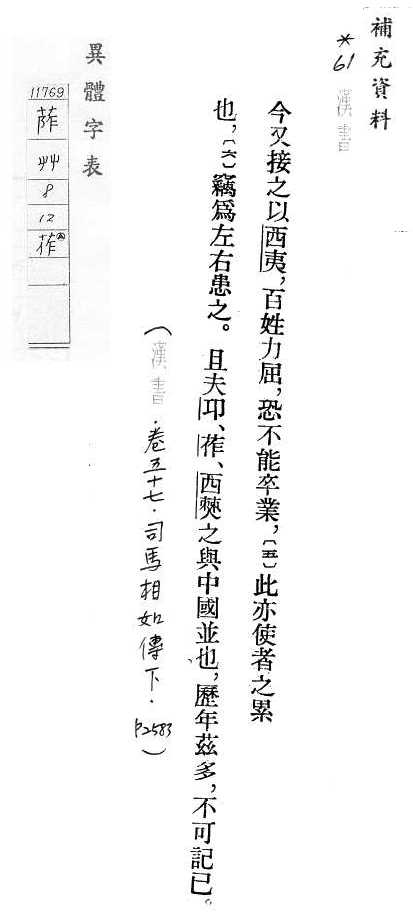 補充資料
*61
漢書
今又接之以西夷,百姓力屈,恐不能卒業,〔五〕此亦使者之累
也,〔六〕竊爲左右患之。且夫卭、莋、西僰之與中國並也,歷年茲多,不可記已。
(漢書.卷五十七.司馬相如傳下.P2583)
異體字表
11769
艸
8
12